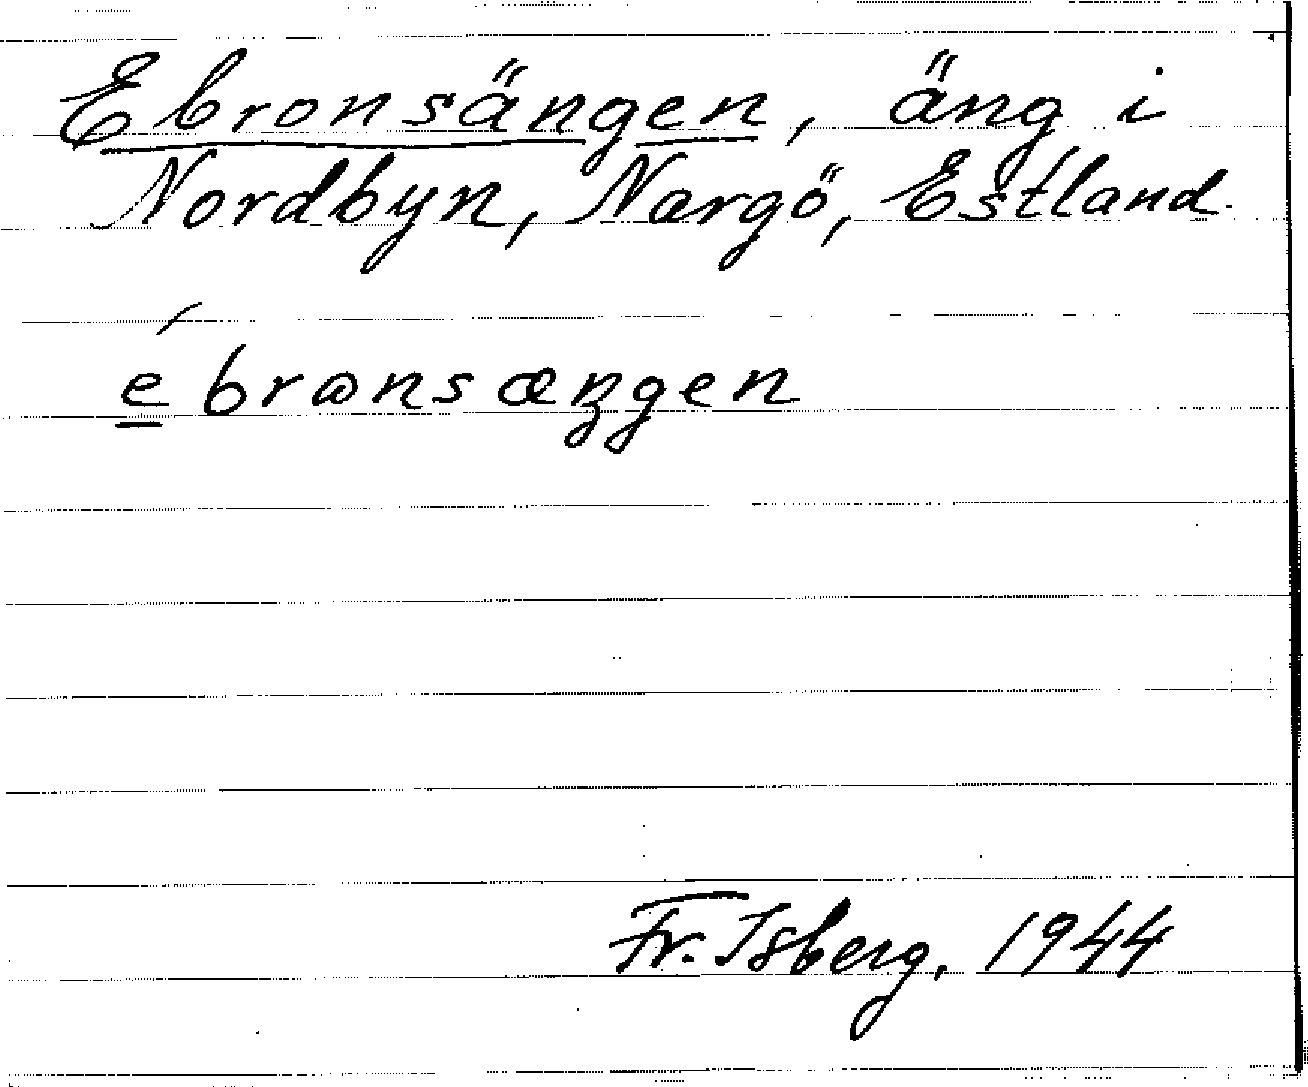 Ebronsängen, äng i
Nordbyn, Nargö, Estland.
é̲bransæŋgen
Fr. Isberg, 1944